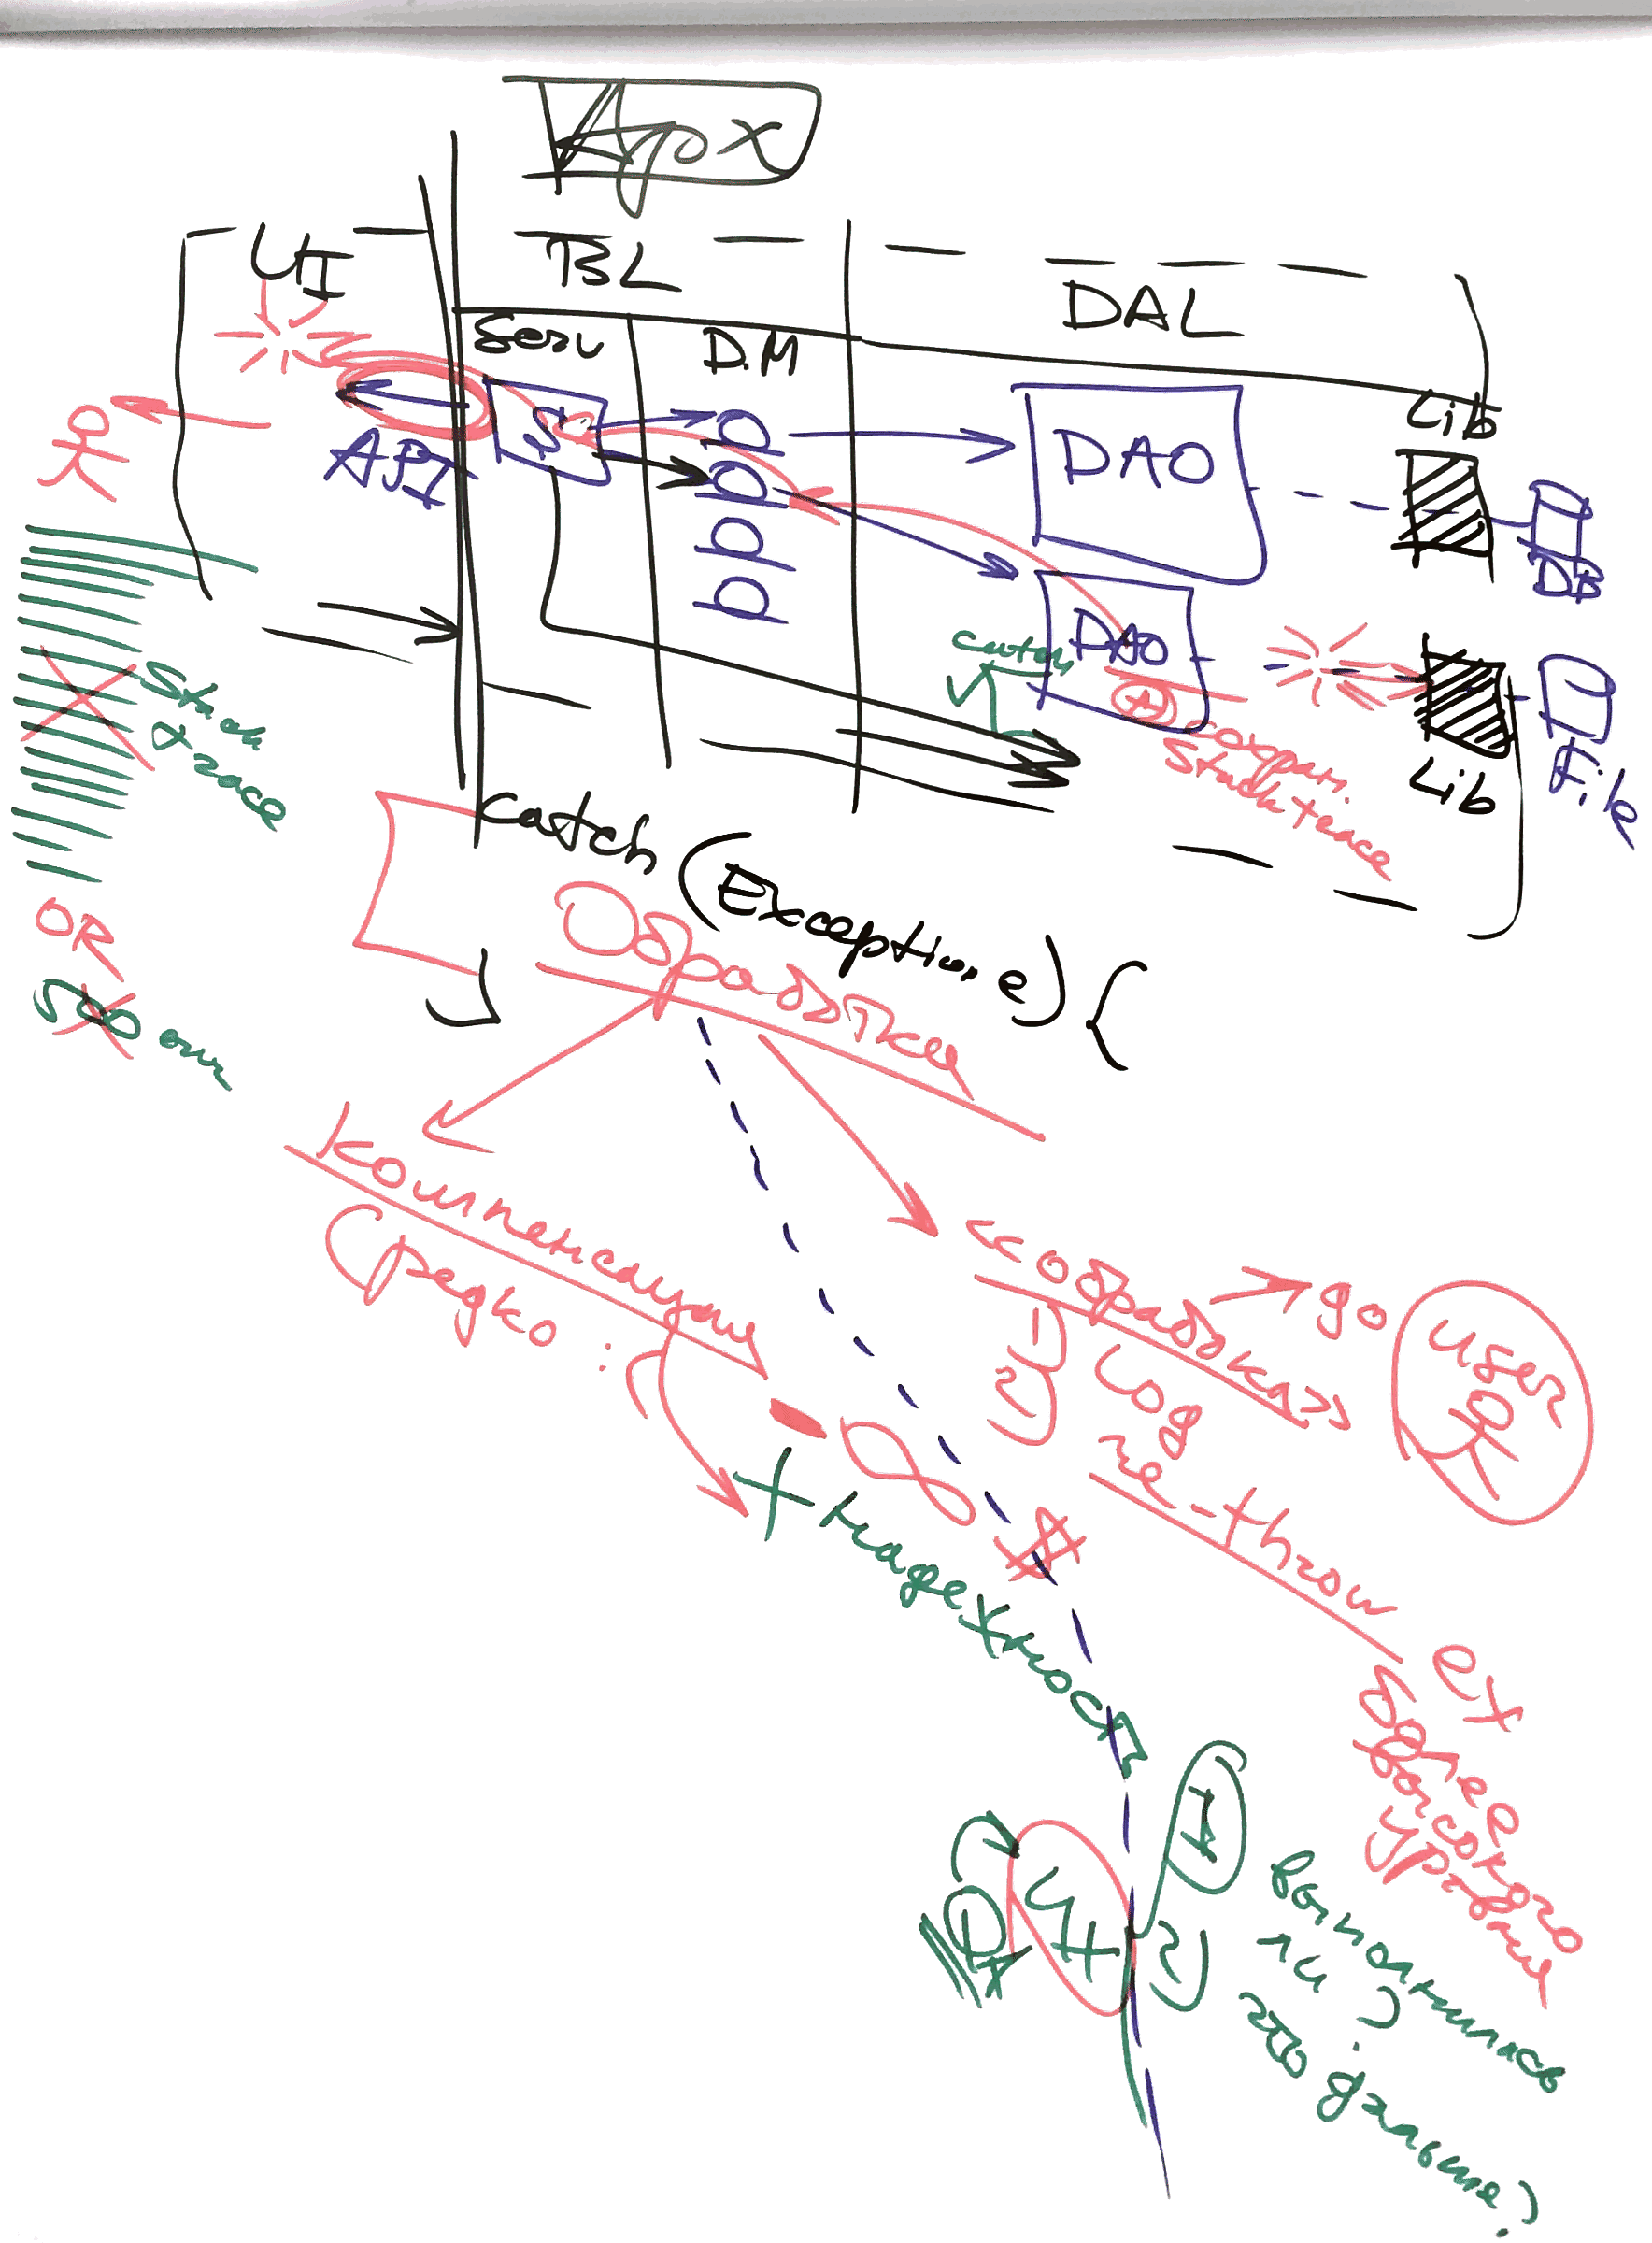 UI
BL
DAL
Serv
D.M
API
S
DAO
Lib
DB
DAO
catch
сохран.
Stack trace
Lib
File
Stack
trace
OR
500 ош
catch (Exception e) {
Обработка
компенсация
(редко :
<< обработка >>
до
user
1) Log
2) re-throw
ex
более
высокого
уровня
- ∞
+ надежность
1
2)
выполнилась
ли?
что дальше?